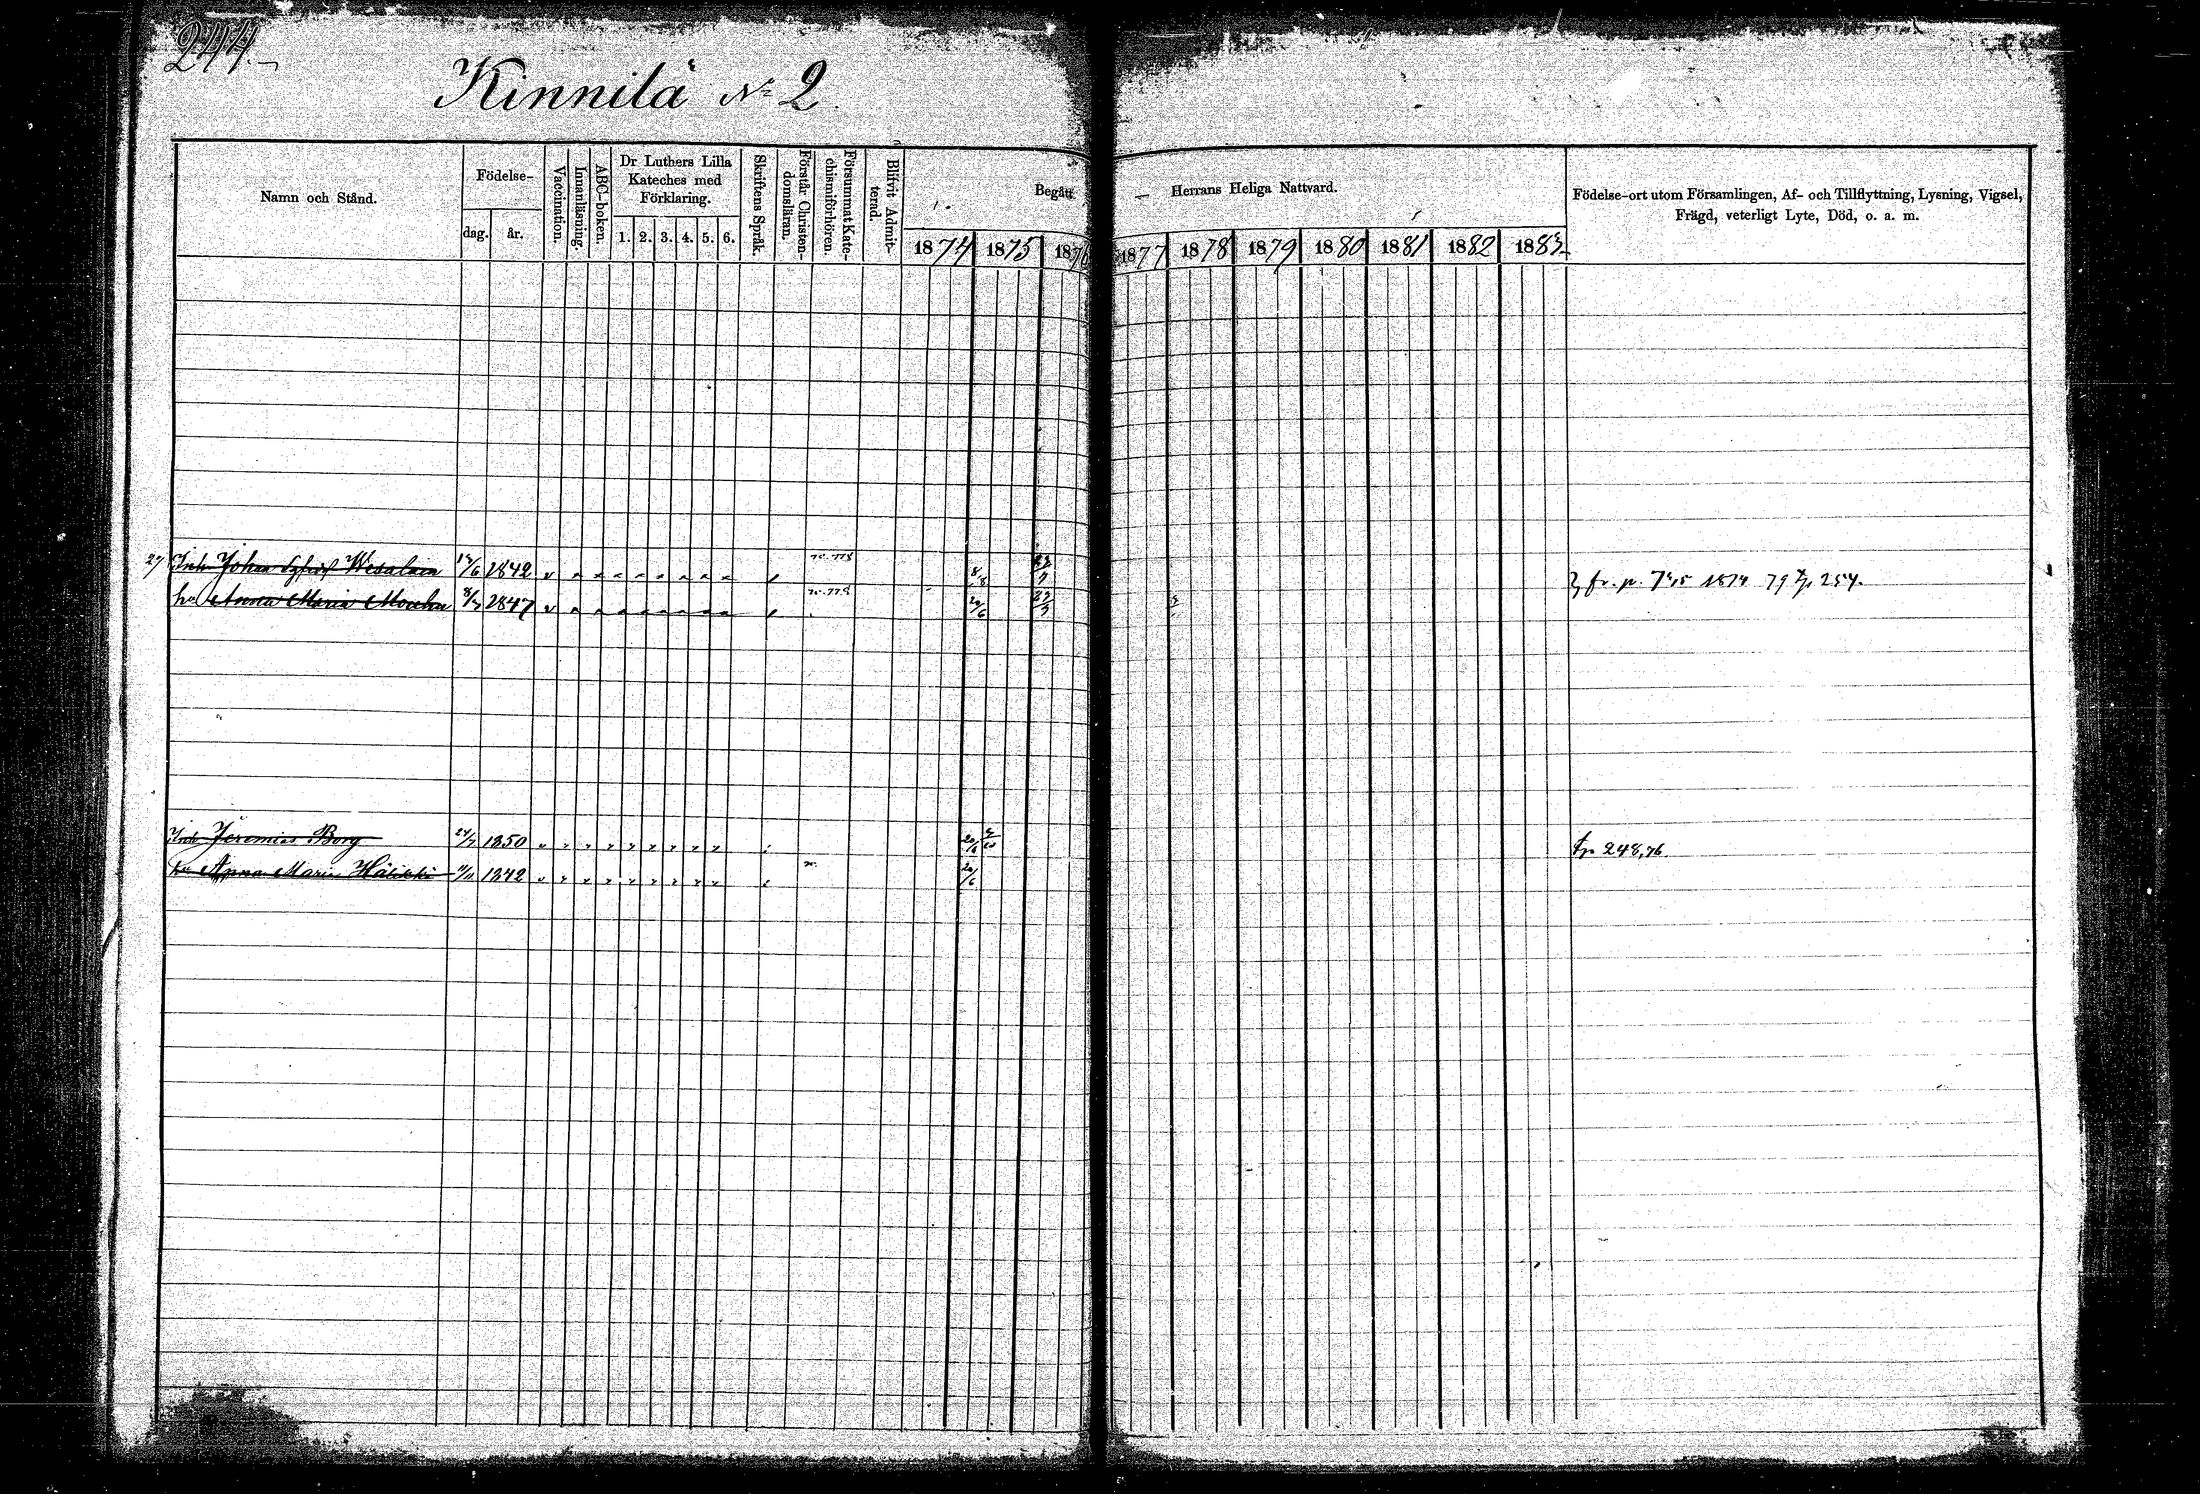 244.
Kinnilä № 2.
Namn och Stånd.
Födelse-
dag.
år.
Vaccination.
Innanläsning.
ABC-boken.
Dr Luthers Lilla
Kateches med
Förklaring.
1. 2. 3. 4. 5. 6.
Skriftens Språk.
Förstår Christen-
domsläran.
Försummat Kate-
chismiförhören.
Blifvit Admit-
terad.
Begått
Herrans Heliga Nattvard.
1874 1875 1876 1877 1878 1879 1880 1881 1882 1883
Födelse-ort utom Församlingen, Af- och Tillflyttning, Lysning, Vigsel,
Frägd, veterligt Lyte, Död, o. a. m.
27 Inh. Johan Wesalain 1842 fr. p. 1874 79 254.
hu Anna Maria 1847
Inh Jeremias Borg 24/7 1850 tp 248,76.
hu Anna Maria 1842